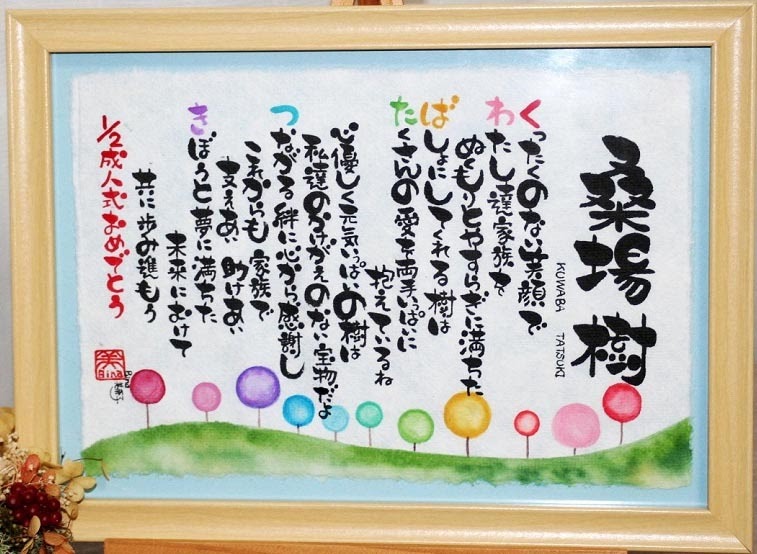 桑場 樹
KUWABA TATSUKI
くったくのない笑顔で
わたし達家族を
ぬくもりとやすらぎに満ちた
ばしょにしてくれる樹は
たくさんの愛を両手いっぱいに
抱えているね
心優しく元気いっぱいの樹は
私達のかけがえのない宝物だよ
つながる絆に心から感謝し
これからも家族で
支えあい 助けあい
きぼうと夢に満ちた
未来にむけて
共に歩み進もう
1/2成人式おめでとう
美
Bina